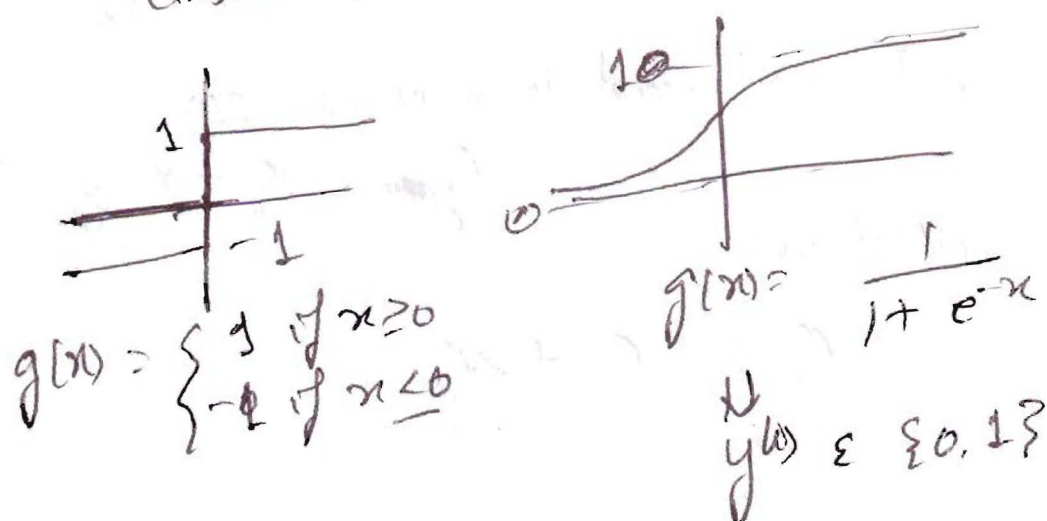 1
-1
g(x) = { 1 if x ≥ 0
{ -1 if x < 0
1
0
g(x) = 1 / 1 + e^-x
y^(i) ε {0, 1}